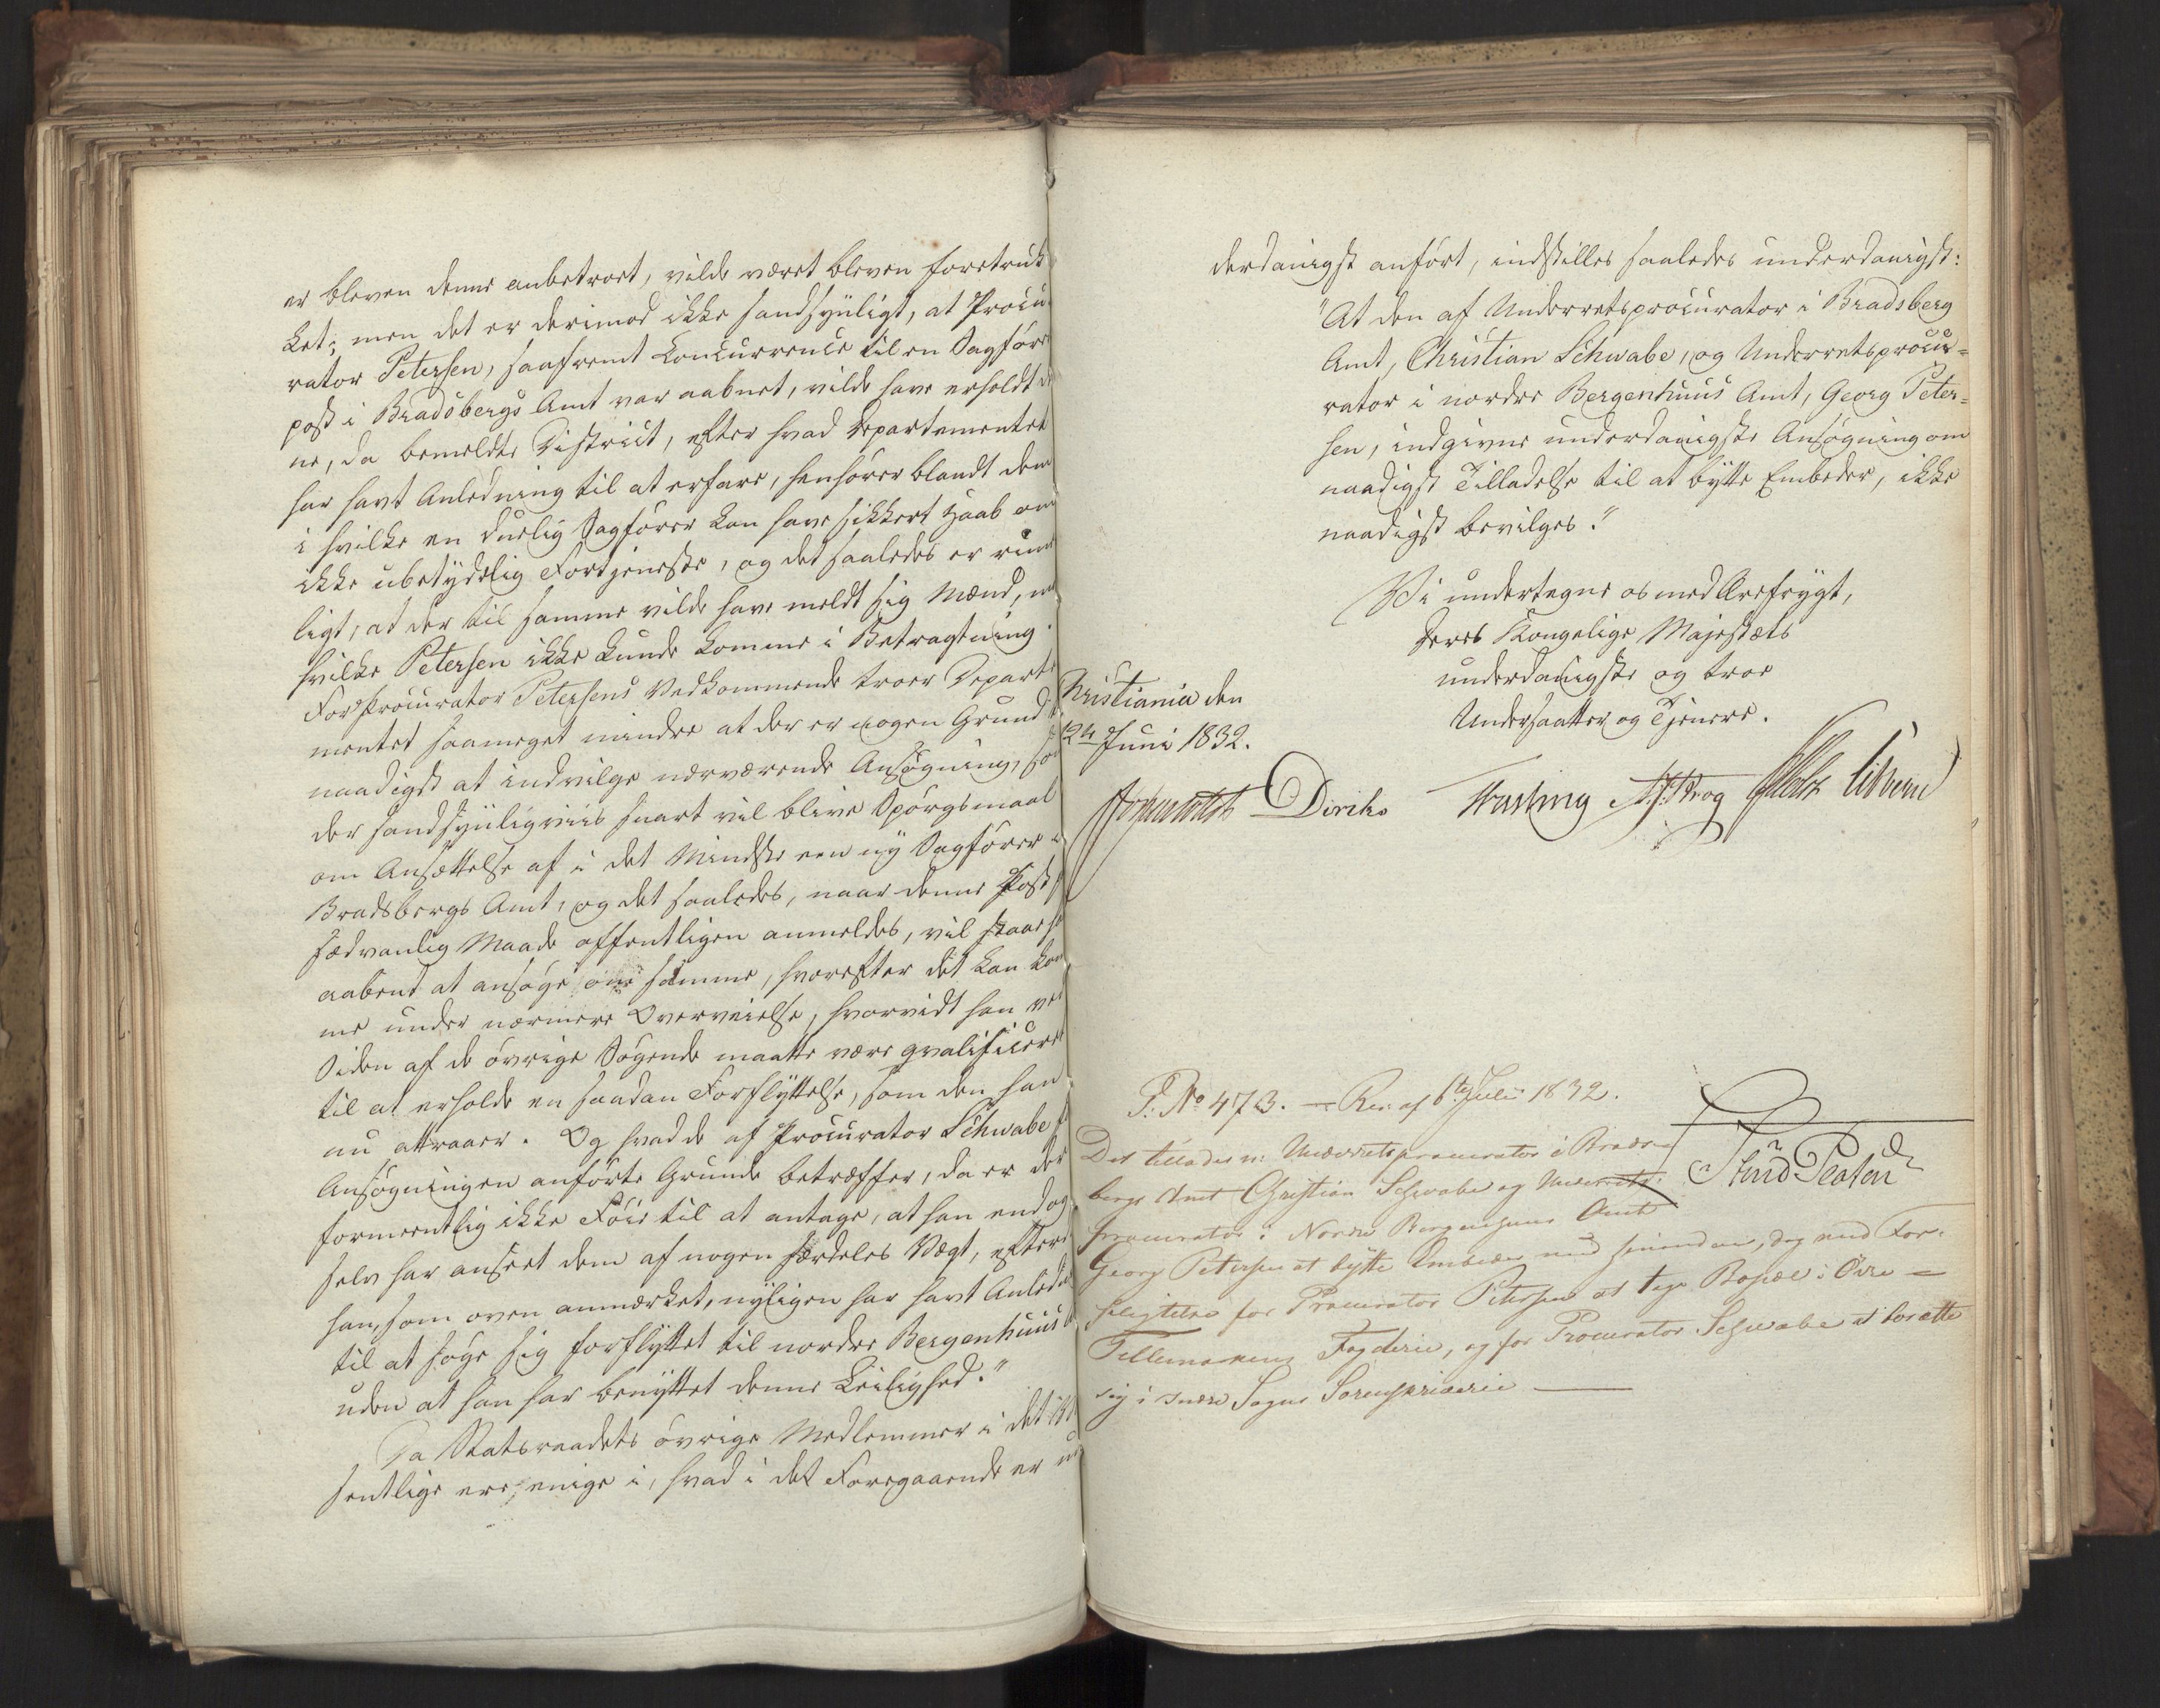 er bleven denne anbetroet, vilde været bleven foretruk
ket; men det er derimod ikke sandsynligt, at Procu-
rator Petersen, saafremt Concurrence til en Sagfører
post i Bradsbergs Amt var aabnet, vilde have erholdt
ne, da bemeldte District, efter hvad Departementet
har havt Anledning til at erfare, henhører blandt dem
i hvilke en duelig Sagfører kan have sikkert Haab om
ikke ubetydelig Fortjeneste, og det saaledes er rime
ligt, at der til samme vilde have meldt sig Mænd,
hvilke Petersen ikke kunde komme i Betragtning.
For Procurator Petersens Vedkommende troer Departe
mentet saameget mindre at der er nogen Grund
naadigst at indvilge nærværende Ansøgning, som
der sandsynligviis snart vil blive Spørgsmaal
om Ansættelse af i det Mindste een ny Sagfører i
Bradsbergs Amt, og det saaledes, naar denne Post
sædvanlig Maade offentligen anmeldes, vil staae
aabent at ansøge om samme, hvorefter det kan kom
me under nærmere Overveielse, hvorvidt han ved
Siden af de øvrige Søgende maatte være qvalificeret
til at erholde en saadan Forflyttelse, som den han
nu attraaer. Og hvad de af Procurator Schwabe
Ansøgningen anførte Grunde betræffer, da er der
formeentlig ikke Föie til at antage, at han endog
selv har anseet dem af nogen særdeles Vægt, efter
han, som oven anmærket, nyligen har havt Anled
til at søge sig forflyttet til nordre Bergenhuus
uden at han har benyttet denne Leilighed."
Da Statsraadets øvrige Medlemmer i det
sentlige ere enige i, hvad i det Foregaaende er un
derdanigst anført, indstilles saaledes underdanigst:
"At den af Underretsprocurator i Bradsberg
Amt, Christian Schwabe, og Underretsprocu=
rator i nordre Bergenhuus Amt, Georg Peter=
sen, indgivne underdanigste Ansøgning om
naadigst Tilladelse til at bytte Embeder, ikke
naadigst bevilges."
Vi undertegne os med Ærefrygt,
Deres Kongelige Majestæts
underdanigste og troe
Undersaatter og Tjenere.
Christiania den
12te Juni 1832.
Diriks Fasting Krog Holst
P. No 473. — Res. af 6te Juli 1832.
Det tillades Underretsprocurator i Brads-
bergs Amt Christian Schwabe og Underrets-
procurator i Nordre Bergenhuus Amt
Georg Petersen at bytte Embeder med hinanden, dog med For-
pligtelse for Procurator Petersen at tage Bopæl i Övre
Tellemarkens Fogderie, og for Procurator Schwabe at bosætte
sig i Indre Sogns Sorenskriverie —